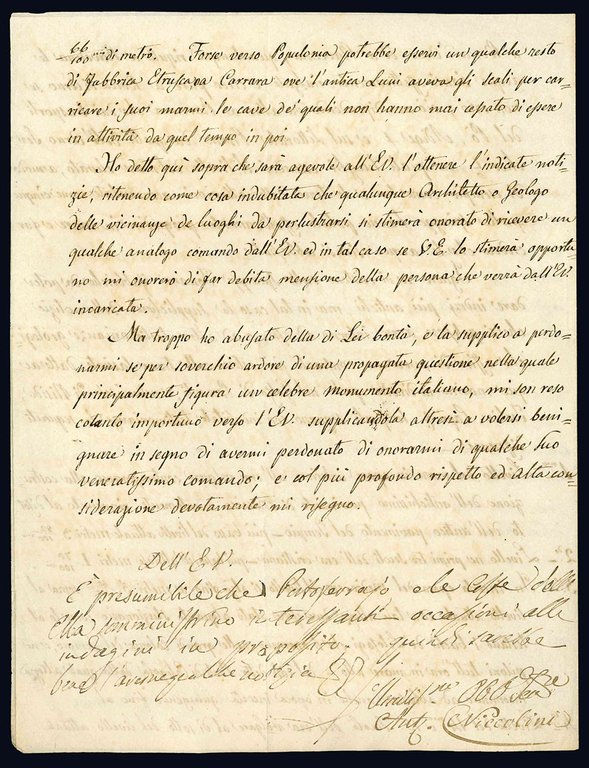 66/100mi di metro. Forse verso Populonia potrebbe esservi un qualche resto
di fabbrica Etrusca, a Carrara ove l'antica Luni aveva gli scali per car=
ricare i suoi marmi le cave de' quali non hanno mai cessato di essere
in attività da quel tempo in poi
Ho detto quì sopra che sarà agevole all'E.V. l'ottenere l'indicate noti=
zie, ritenendo come cosa indubitata che qualunque Architetto o Geologo
delle vicinanze de luoghi da perlustrarsi si stimerà onorato di ricevere un
qualche analogo comando dall'E.V. ed in tal caso se V.E. lo stimerà opportu=
no mi onorerò di far debita menzione della persona che verrà dall'E.V.
incaricata.
Ma troppo ho abusato della di Lei bontà, e la supplico a perdo=
narmi se per soverchio ardore di una propagata questione nella quale
principalmente figura un celebre monumento italiano, mi son reso
cotanto importuno verso l'E.V. supplicandola altresì a volersi beni=
gnare in segno di avermi perdonato di onorarmi di qualche suo
veneratissimo comando; e col più profondo rispetto ed alta con=
siderazione devotamente mi rassegno.
Dell'E.V.
È presumibile che Portoferrajo o le Coste dell'
Elba somministrino interessanti occasioni alle
indagini in proposito. quindi sarebbe
bene l'averne qualche notizia
Umiliss.mo Obb. Ser.re
Ant. Niccolini